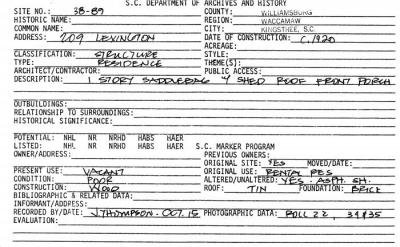 S.C. DEPARTMENT OF ARCHIVES AND HISTORY
SITE NO.: 38-89 COUNTY: WILLIAMSBURG
HISTORIC NAME: REGION: WACCAMAW
COMMON NAME: CITY: KINGSTREE, S.C.
ADDRESS: 209 LEXINGTON DATE OF CONSTRUCTION: C.1920
ACREAGE:
CLASSIFICATION: STRUCTURE STYLE:
TYPE: RESIDENCE THEME(S):
ARCHITECT/CONTRACTOR: PUBLIC ACCESS:
DESCRIPTION: 1 STORY SADDLEBAG W/ SHED ROOF FRONT PORCH
OUTBUILDINGS:
RELATIONSHIP TO SURROUNDINGS:
HISTORICAL SIGNIFICANCE:
POTENTIAL: NHL NR NRHD HABS HAER S.C. MARKER PROGRAM
LISTED: NHL NR NRHD HABS HAER PREVIOUS OWNERS:
OWNER/ADDRESS: ORIGINAL SITE: YES MOVED/DATE:
PRESENT USE: VACANT ORIGINAL USE: RENTAL RES
CONDITION: POOR ALTERED/UNALTERED: YES. ASPH. SH.
CONSTRUCTION: WOOD ROOF: TIN FOUNDATION: BRICK
BIBLIOGRAPHIC & RELATED DATA:
INFORMANT/ADDRESS:
RECORDED BY/DATE: J THOMPSON. OCT. 15 PHOTOGRAPHIC DATA: ROLL 22, 34 & 35
EVALUATION: